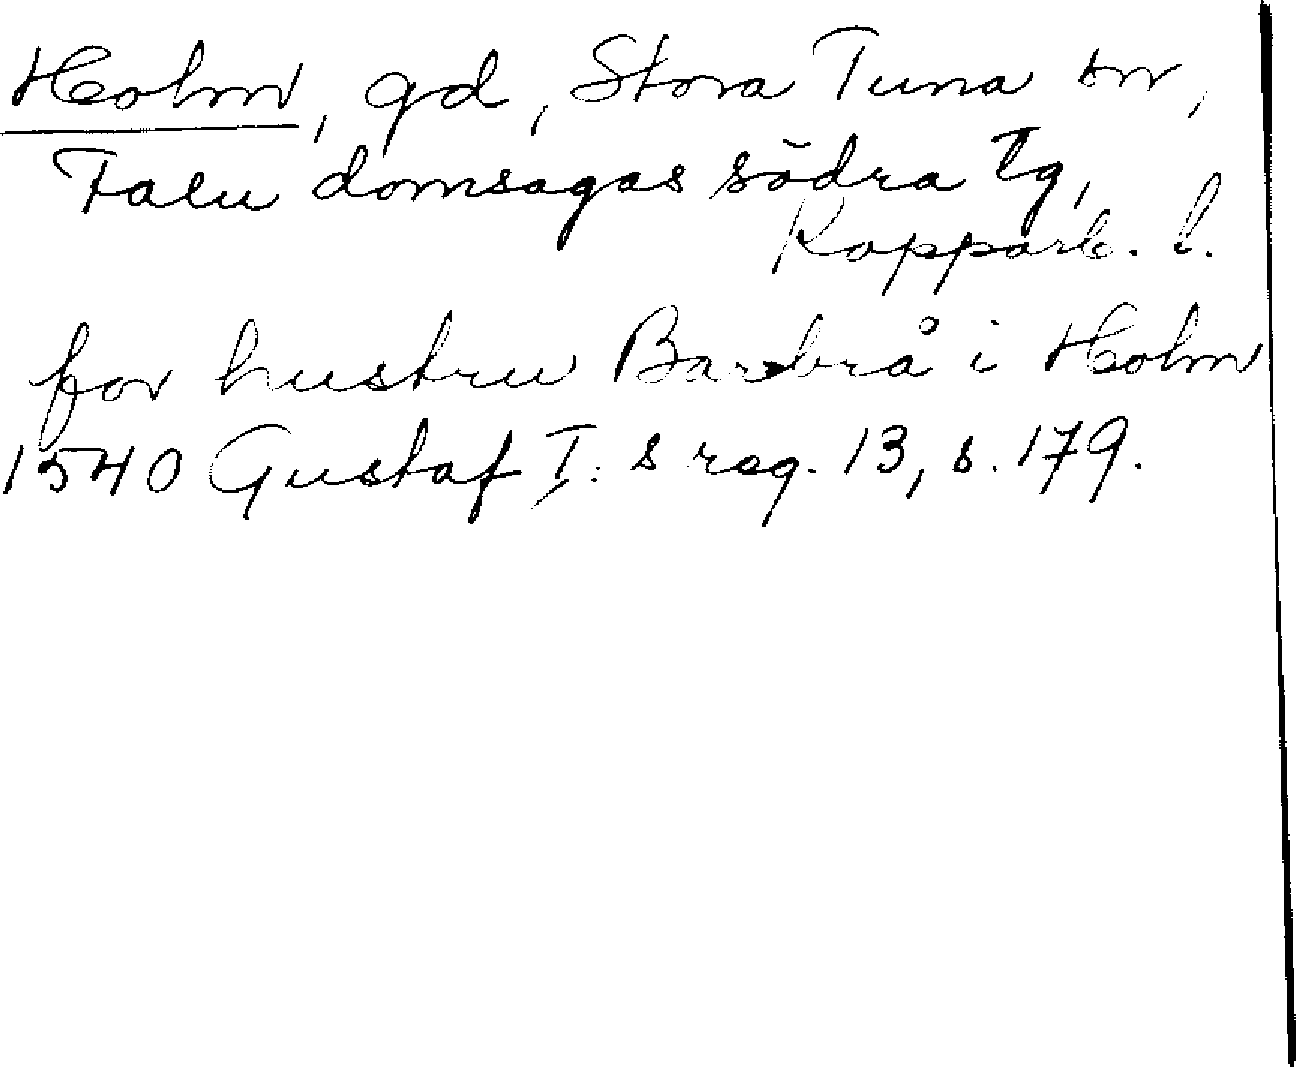 Holm, gd, Stora Tuna sn,
Falu domsagas södra tg,
Kopparb. l.
for hustru Barbrå i Holm
1540 Gustaf I:s reg. 13, s. 179.